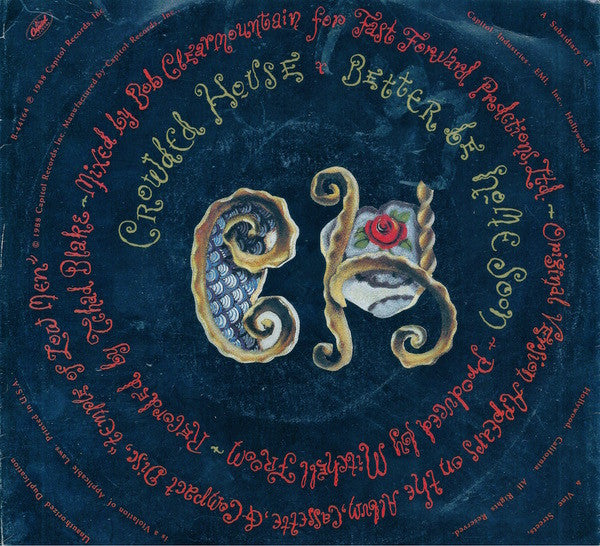 Crowded House * Better Be Home Soon
~ Produced by Mitchell Froom ~ Recorded by Tchad Blake ~ Mixed by Bob Clearmountain for Fast Forward Productions, Ltd. ~ Original Version Appears on the Album, Cassette, & Compact Disc, "Temple of Low Men"
CH
Capitol
B-44164 ℗ 1988 Capitol Records, Inc.
© 1988 Capitol Records, Inc. Manufactured by Capitol Records, Inc.,
A Subsidiary of
Capitol Industries - EMI, Inc., Hollywood
& Vine Streets,
Hollywood, California.
All Rights Reserved.
Unauthorized Duplication
is a Violation of Applicable Laws. Printed in U.S.A.